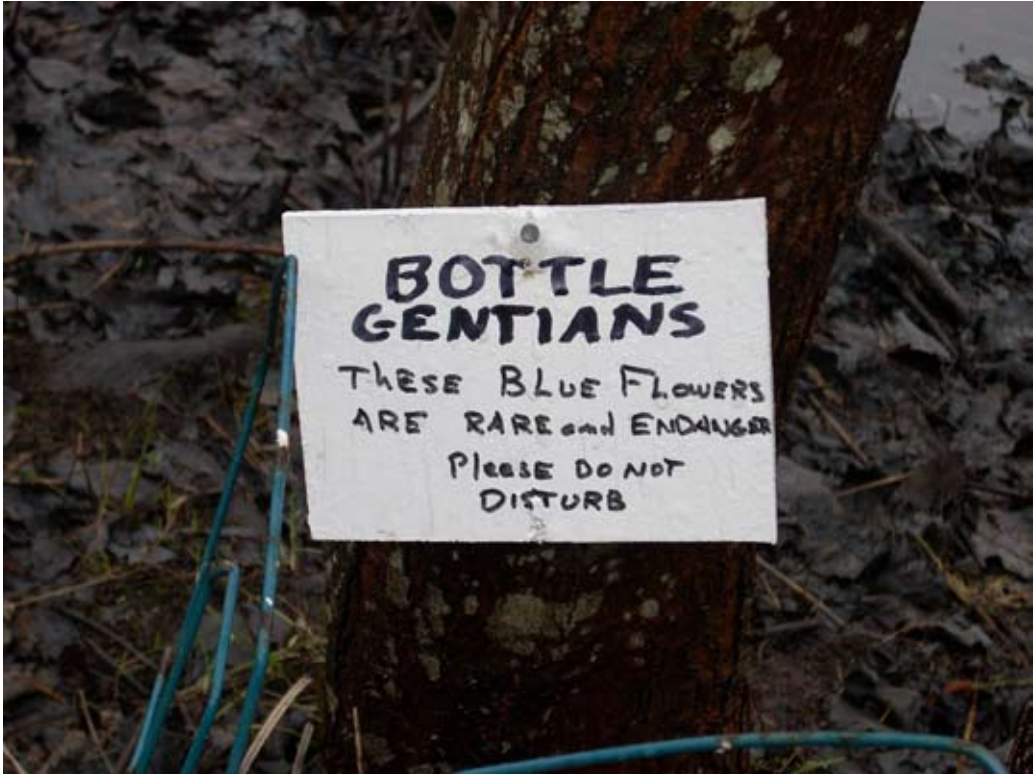 BOTTLE
GENTIANS
ThESE BLue FLOWERS
ARE RARE and ENDANGER
PleeSE DO NOT
DISTURB